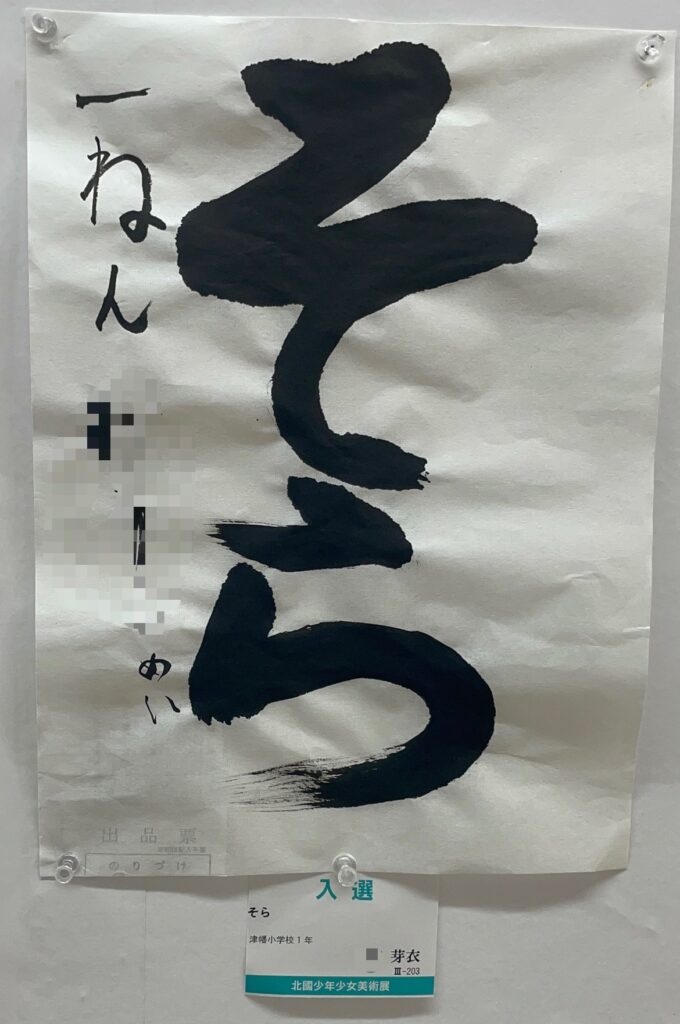 そら
一ねん
めい
出品票
のりづけ
入選
そら
津幡小学校1年
芽衣
Ⅲ-203
北國少年少女美術展